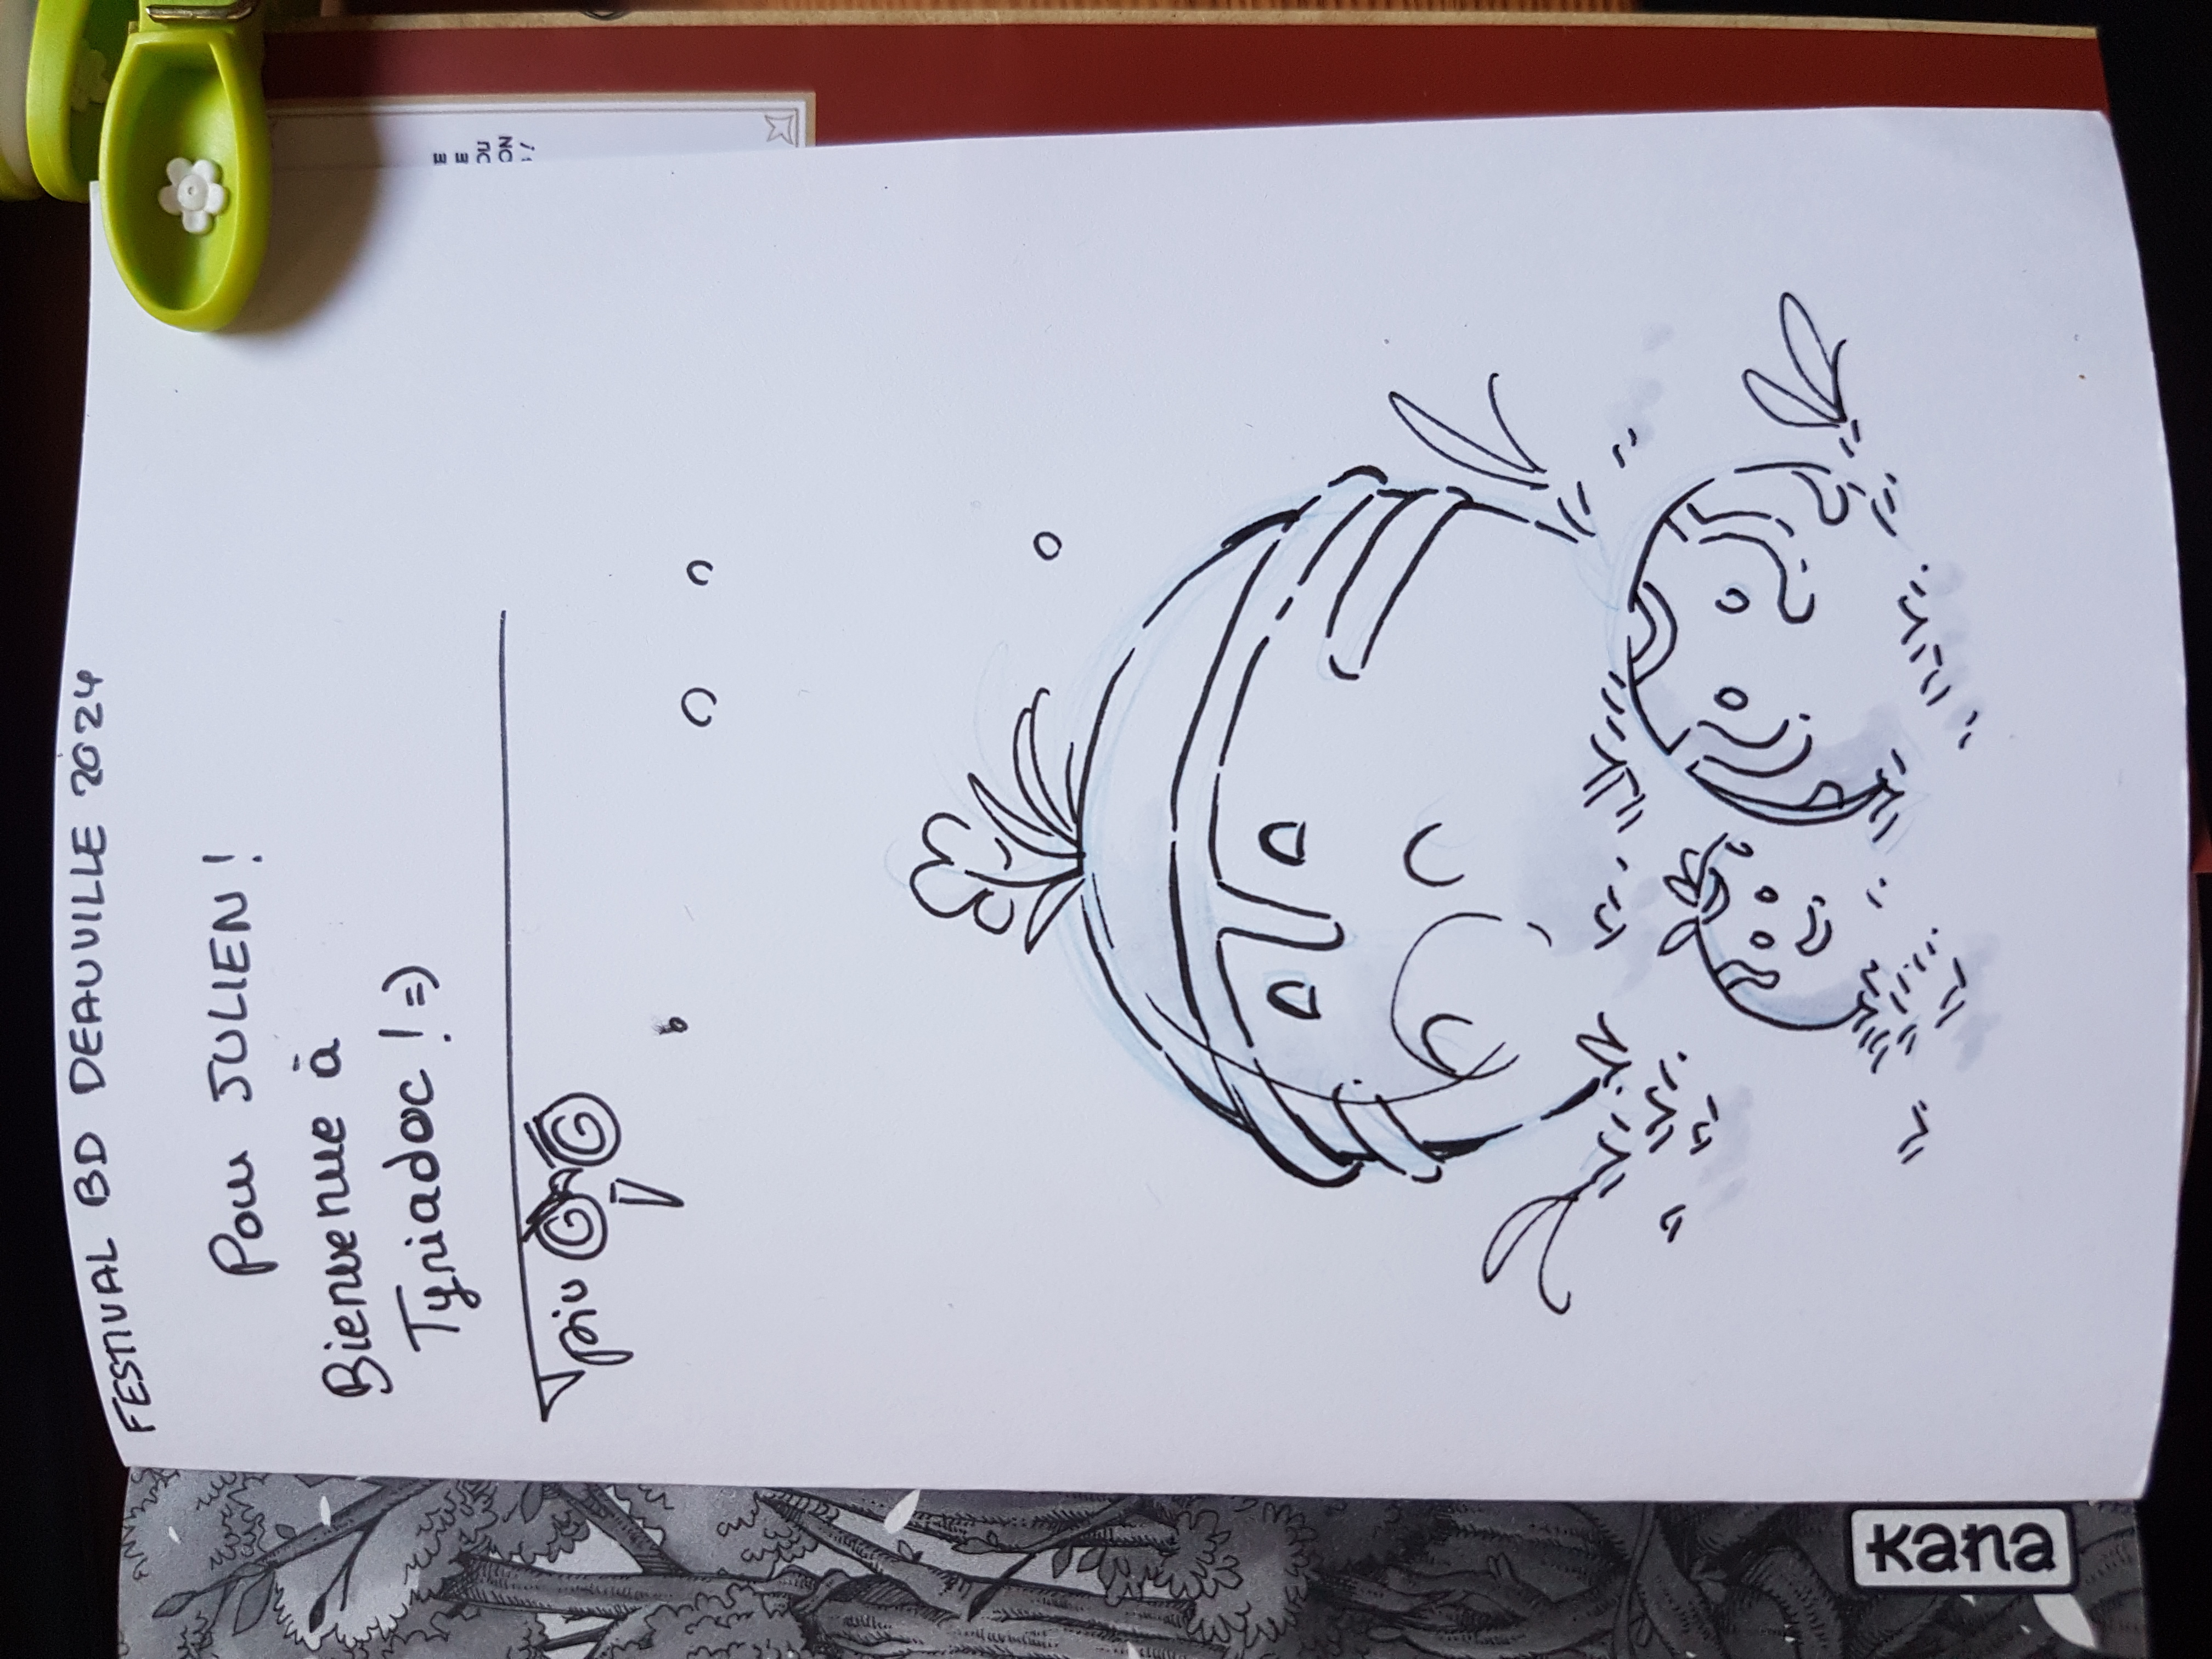 FESTIVAL BD DEAUVILLE 2024
Pour JULIEN !
Bienvenue à
Tyriadoc ! =)
E
E
OU
ON
!
kana